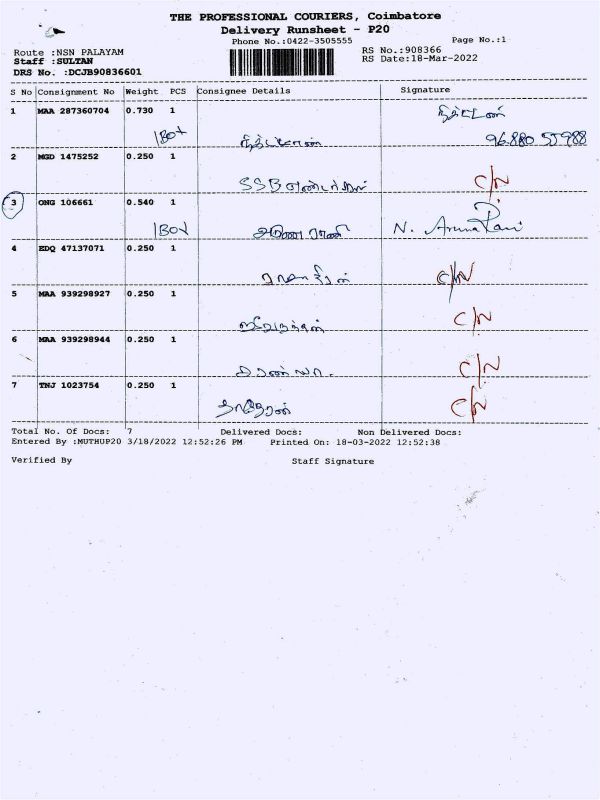 THE PROFESSIONAL COURIERS, Coimbatore
Delivery Runsheet - P20
Phone No.:0422-3505555
Page No.:1
Route :NSN PALAYAM
RS No.:908366
Staff :SULTAN
RS Date:18-Mar-2022
DRS No. :DCJB90836601
S No Consignment No Weight PCS Consignee Details Signature
1 MAA 287360704 0.730 1
1Box 96.880 55988
2 MGD 1475252 0.250 1
SSB C/N
3 ONG 106661 0.540 1
1Box அருணா ராணி N. Aruna Rani
4 EDQ 47137071 0.250 1
C/N
5 MAA 939298927 0.250 1
C/N
6 MAA 939298944 0.250 1
C/N
7 TNJ 1023754 0.250 1
C/N
Total No. Of Docs: 7 Delivered Docs: Non Delivered Docs:
Entered By :MUTHUP20 3/18/2022 12:52:26 PM Printed On: 18-03-2022 12:52:38
Verified By Staff Signature